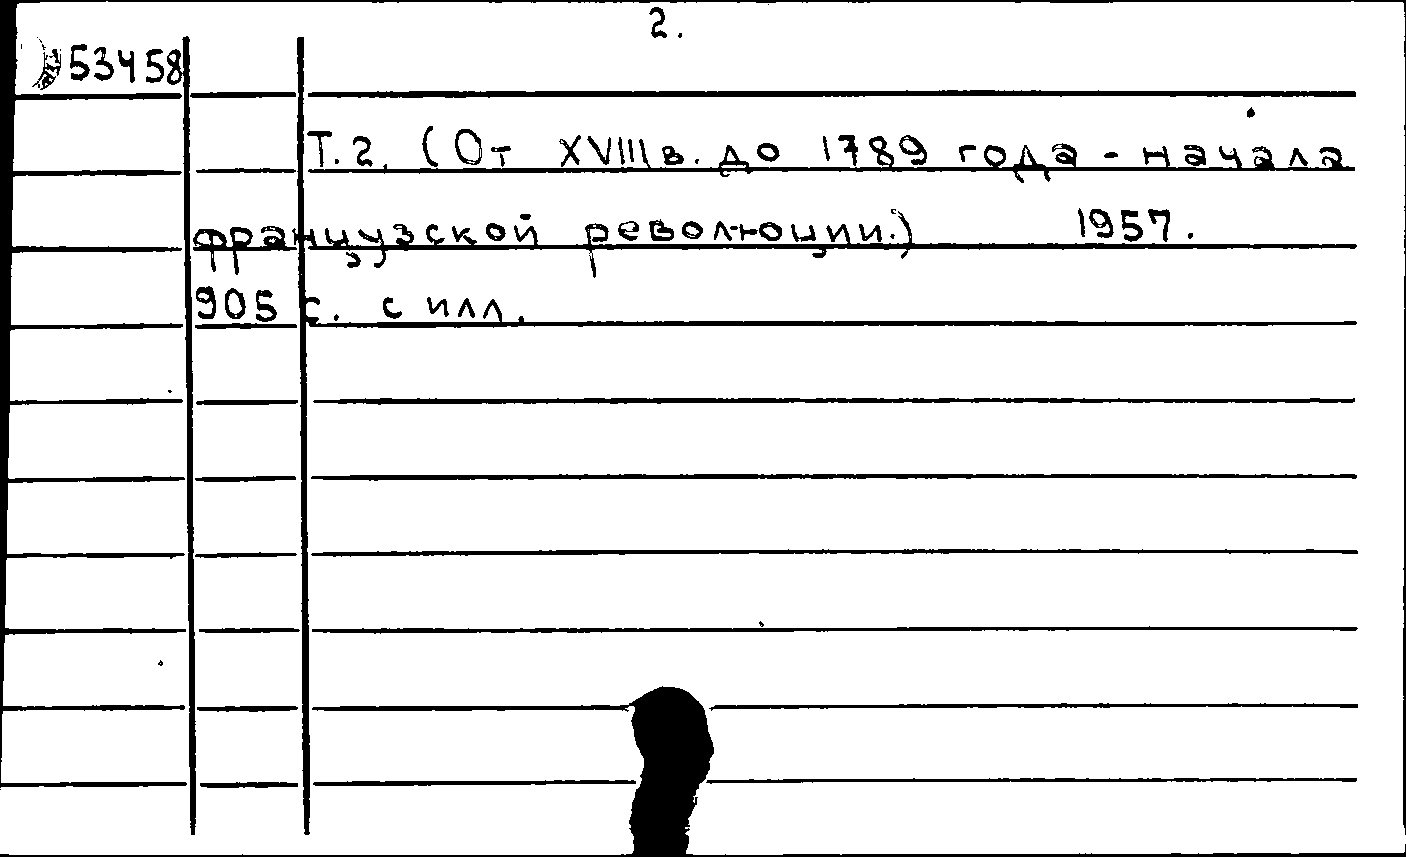 2.
53458
Т. 2. (От XVIII в. до 1789 года - начала
французской революции.) 1957.
905 с. с илл.